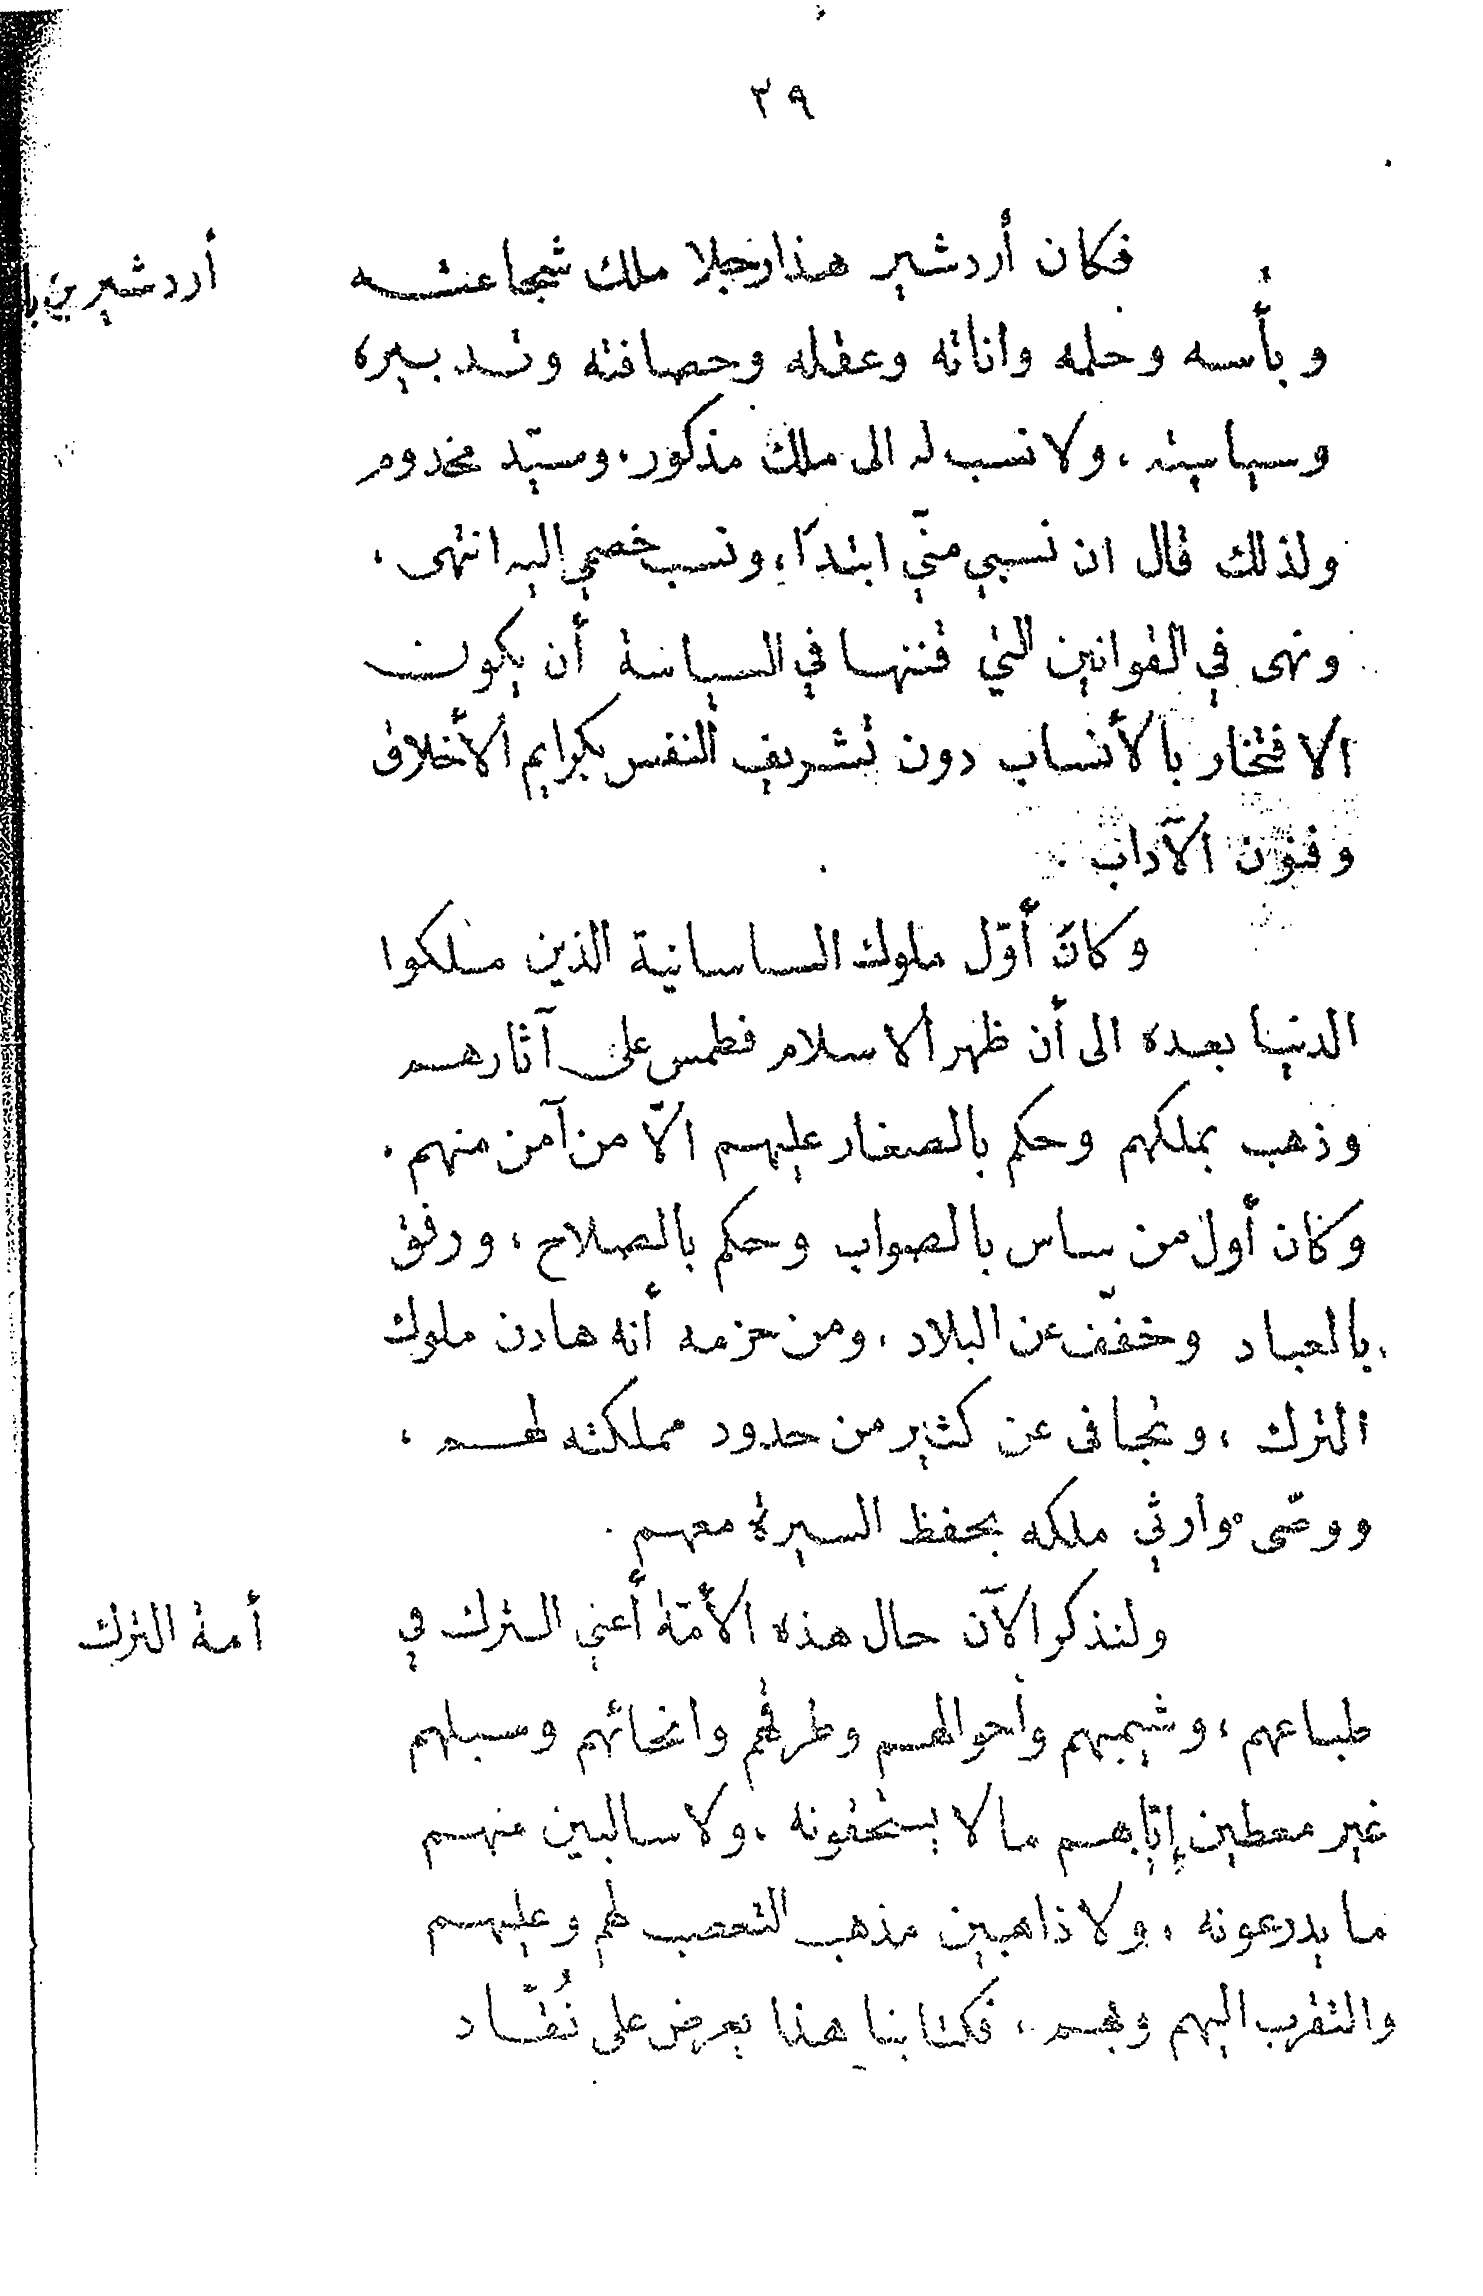 ٣٩
فكان أردشير هذا رجلا ملك شجاعته
أردشير بن با
وبأسه وحلمه واناته وعقله وحصافته وتدبيره
وسياسته ، ولا نسب له الى ملك مذكور ، وسيّد مخدوم
ولذلك قال ان نسبي منّي ابتدأ ، ونسب خصمي إليه انتهى .
ونهى في القوانين التي قننها في السياسة أن يكون
الافتخار بالأنساب دون تشريف النفس بكرايم الأخلاق
وفنون الآداب .
وكان أوّل ملوك الساسانية الذين ملكوا
الدنيا بعده الى أن ظهر الاسلام فطمس على آثارهم
وذهب بملكهم وحكم بالصغار عليهم الاّ من آمن منهم .
وكان أول من ساس بالصواب وحكم بالصلاح ، ورفق
بالعباد وخفّف عن البلاد ، ومن حزمه أنه هادن ملوك
الترك ، وتجافى عن كثير من حدود مملكته لهم ،
ووصّى موارثي ملكه بحفظ السيرة معهم .
ولنذكر الآن حال هذه الأمّة أعني الترك في
أمة الترك
طباعهم ، وشيمهم وأحوالهم وطرقهم وانحائهم وسبلهم
غير معطين إيّاهم ما لا يستحقونه ، ولا سالبين منهم
ما يدرعونه ، ولا ذاهبين مذهب التعصب لهم وعليهم
والتقرب اليهم وبهم ، فكتابنا هذا يعرض على نُقّاد